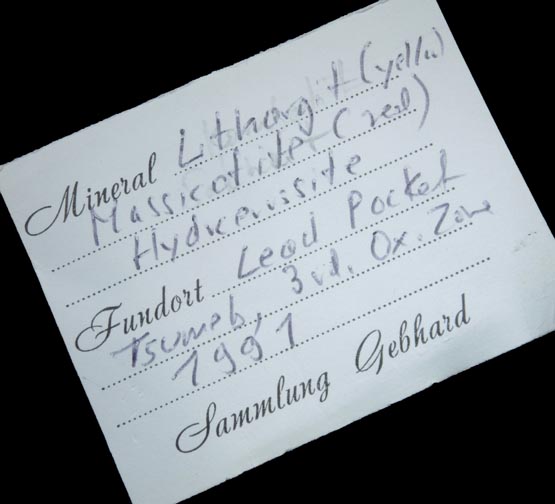 Mineral Lithargit (yellow)
Massicotite (red)
Hydrocerussite
Fundort Lead Pocket
Tsumeb, 3rd. Ox. Zone
1991
Sammlung Gebhard